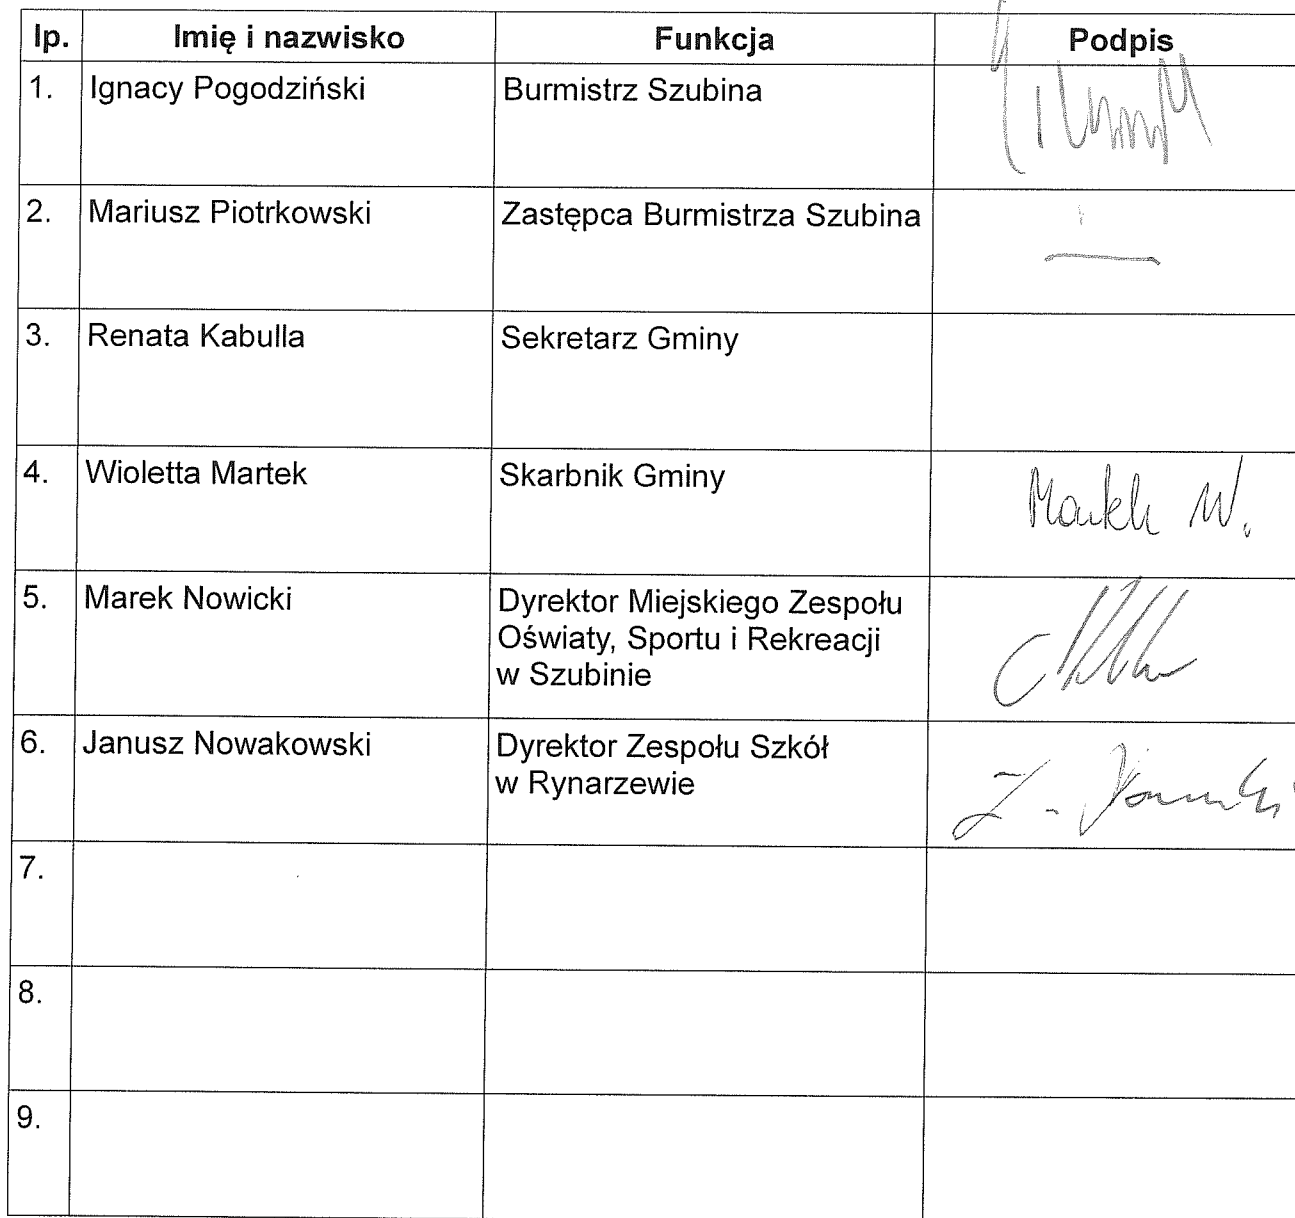 lp. Imię i nazwisko Funkcja Podpis
1. Ignacy Pogodziński Burmistrz Szubina
2. Mariusz Piotrkowski Zastępca Burmistrza Szubina
3. Renata Kabulla Sekretarz Gminy
4. Wioletta Martek Skarbnik Gminy Martek W.
5. Marek Nowicki Dyrektor Miejskiego Zespołu
Oświaty, Sportu i Rekreacji
w Szubinie
6. Janusz Nowakowski Dyrektor Zespołu Szkół
w Rynarzewie
7.
8.
9.